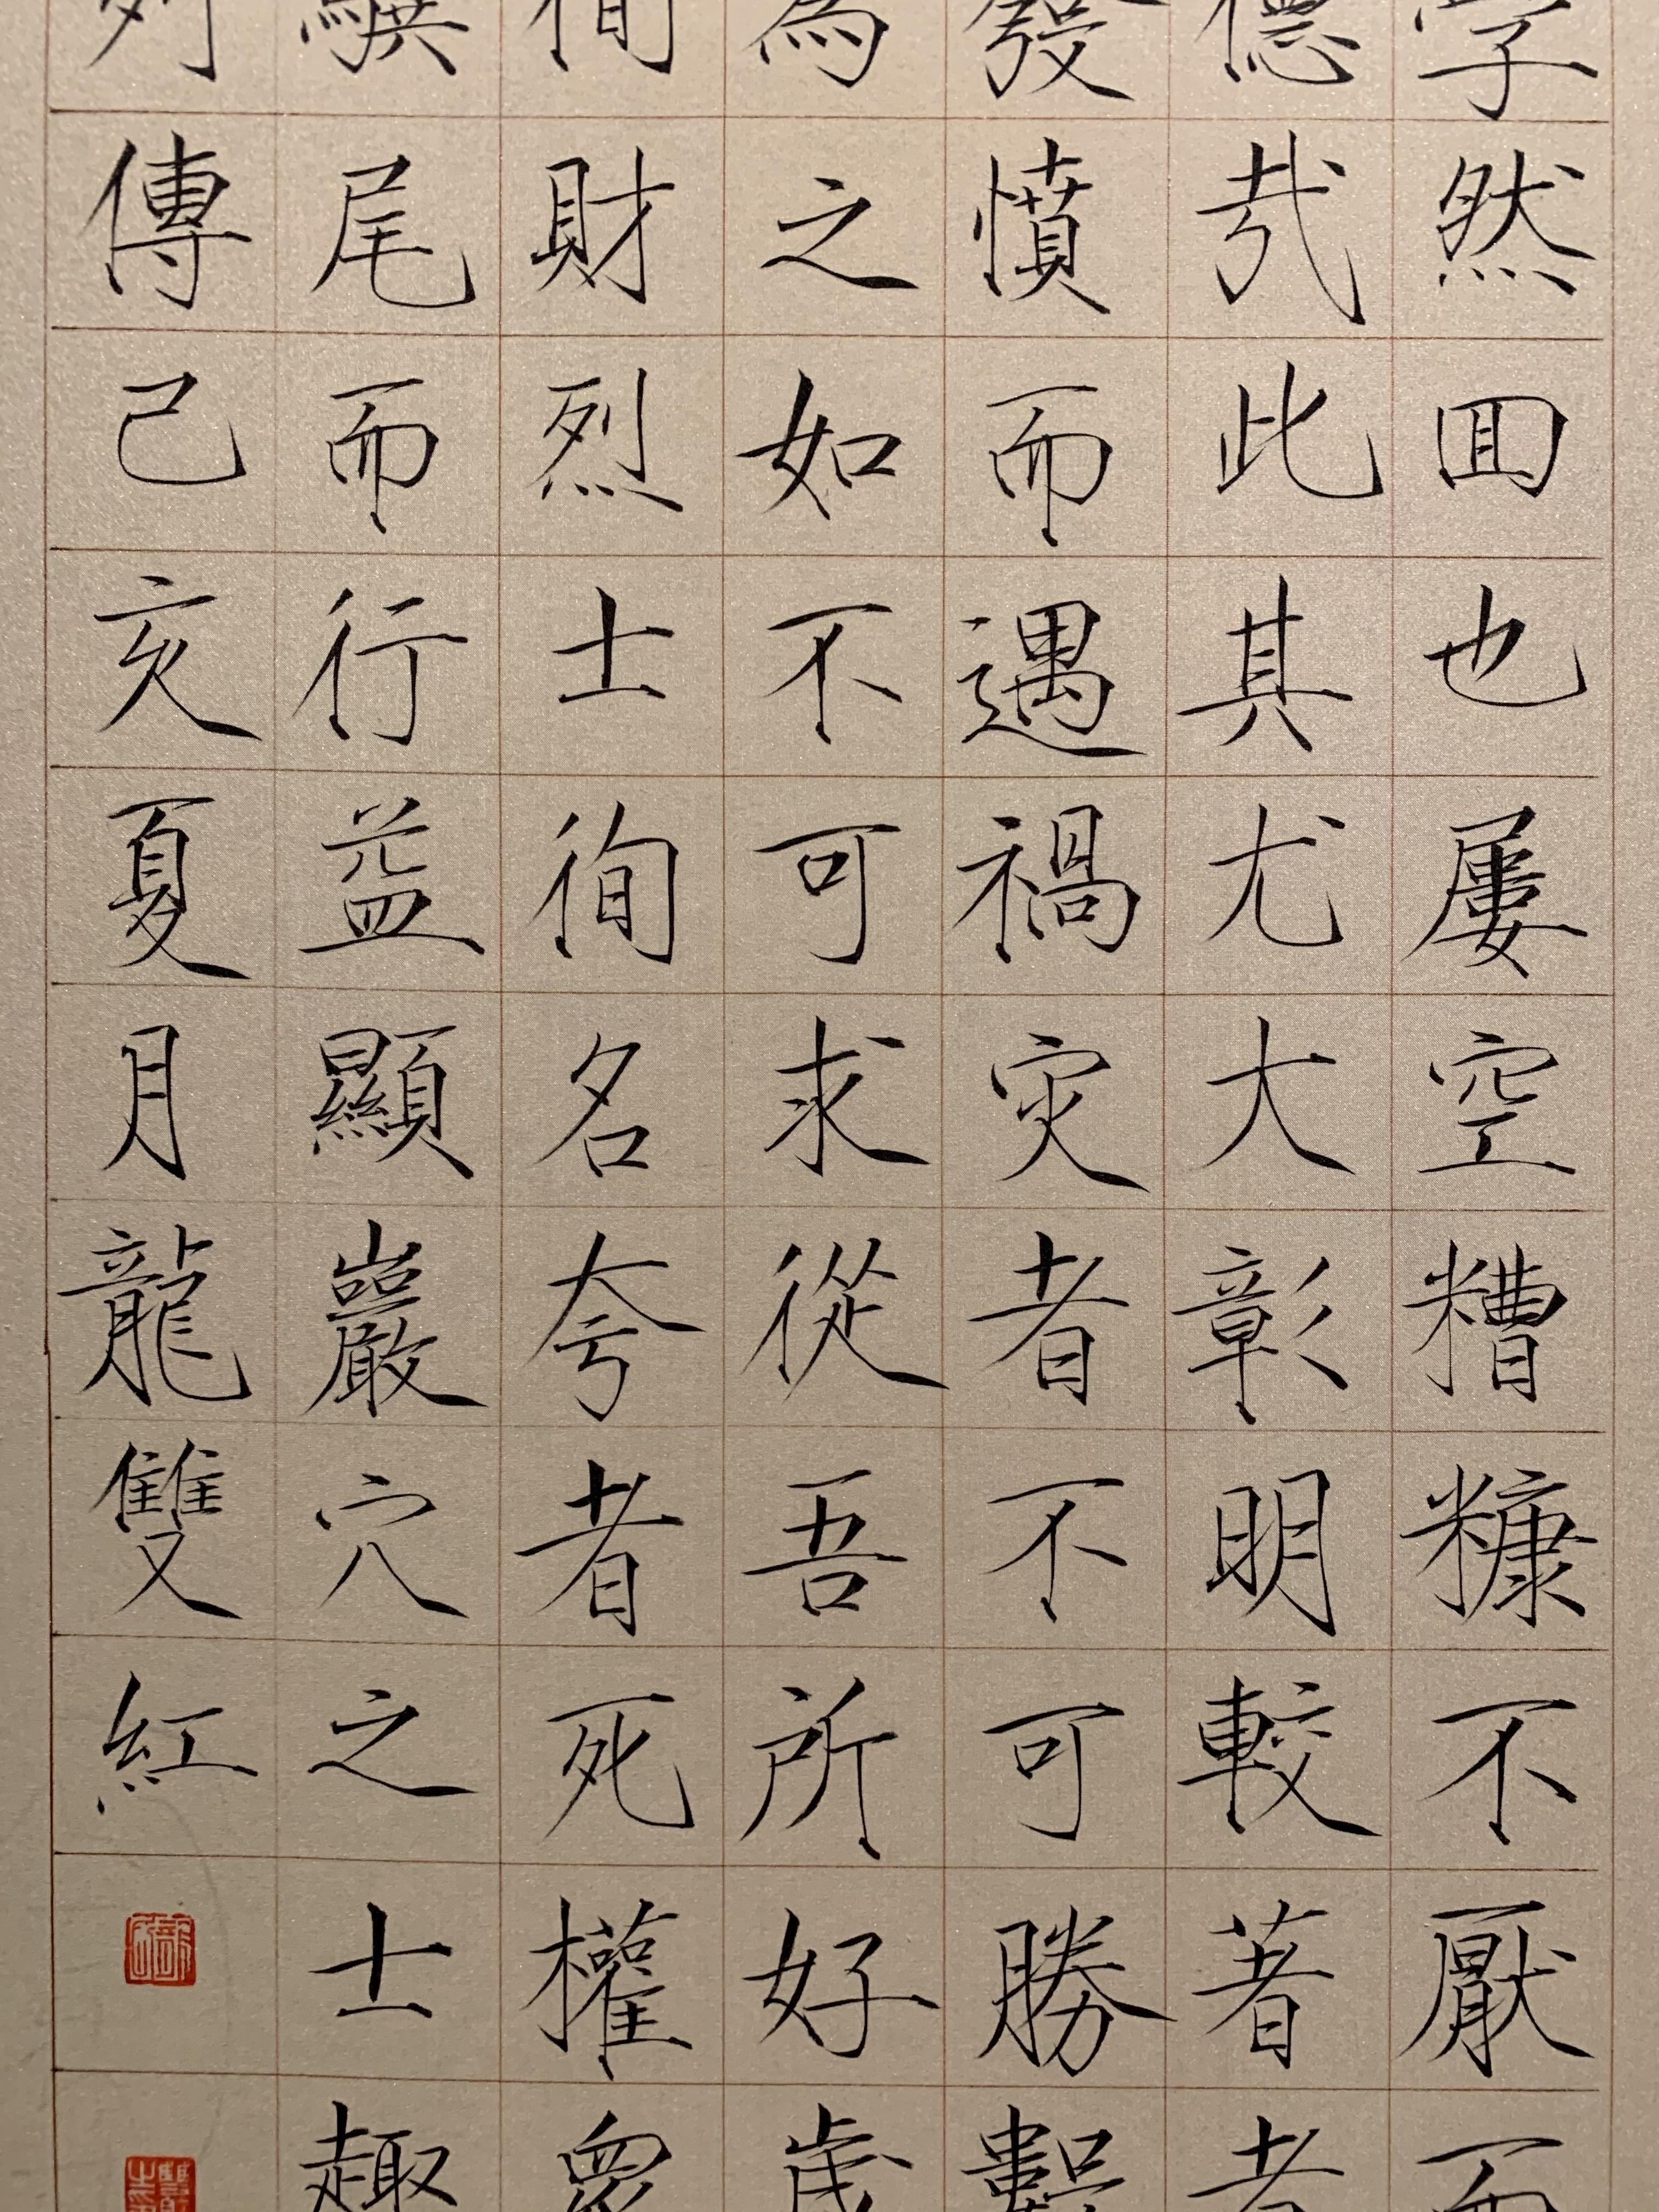 學然回也屢空糟糠不厭而
德哉此其尤大彰明較著者
發憤而遇禍災者不可勝數
為之如不可求從吾所好歲
徇財烈士徇名夸者死權眾
驥尾而行益顯巖穴之士趣
列傳己亥夏月龍雙紅